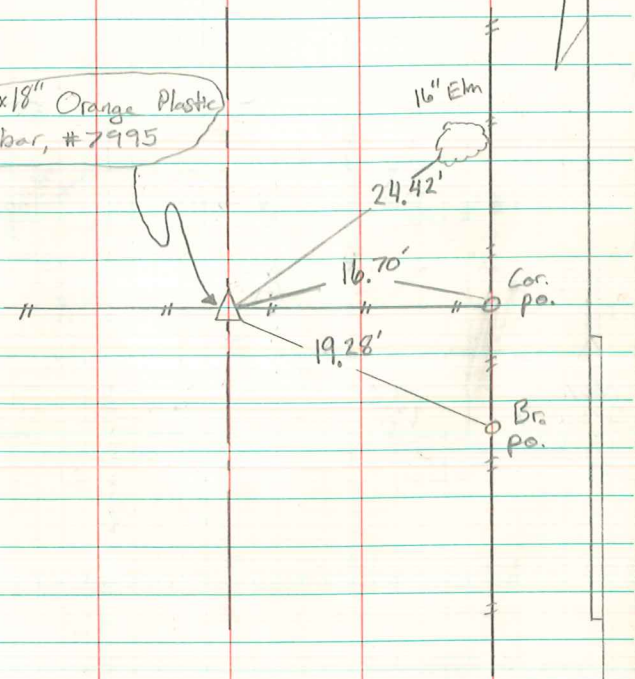 x18" Orange Plastic
bar, #7995
16" Elm
24.42'
16.70'
Cor.
po.
19.28'
Br.
po.